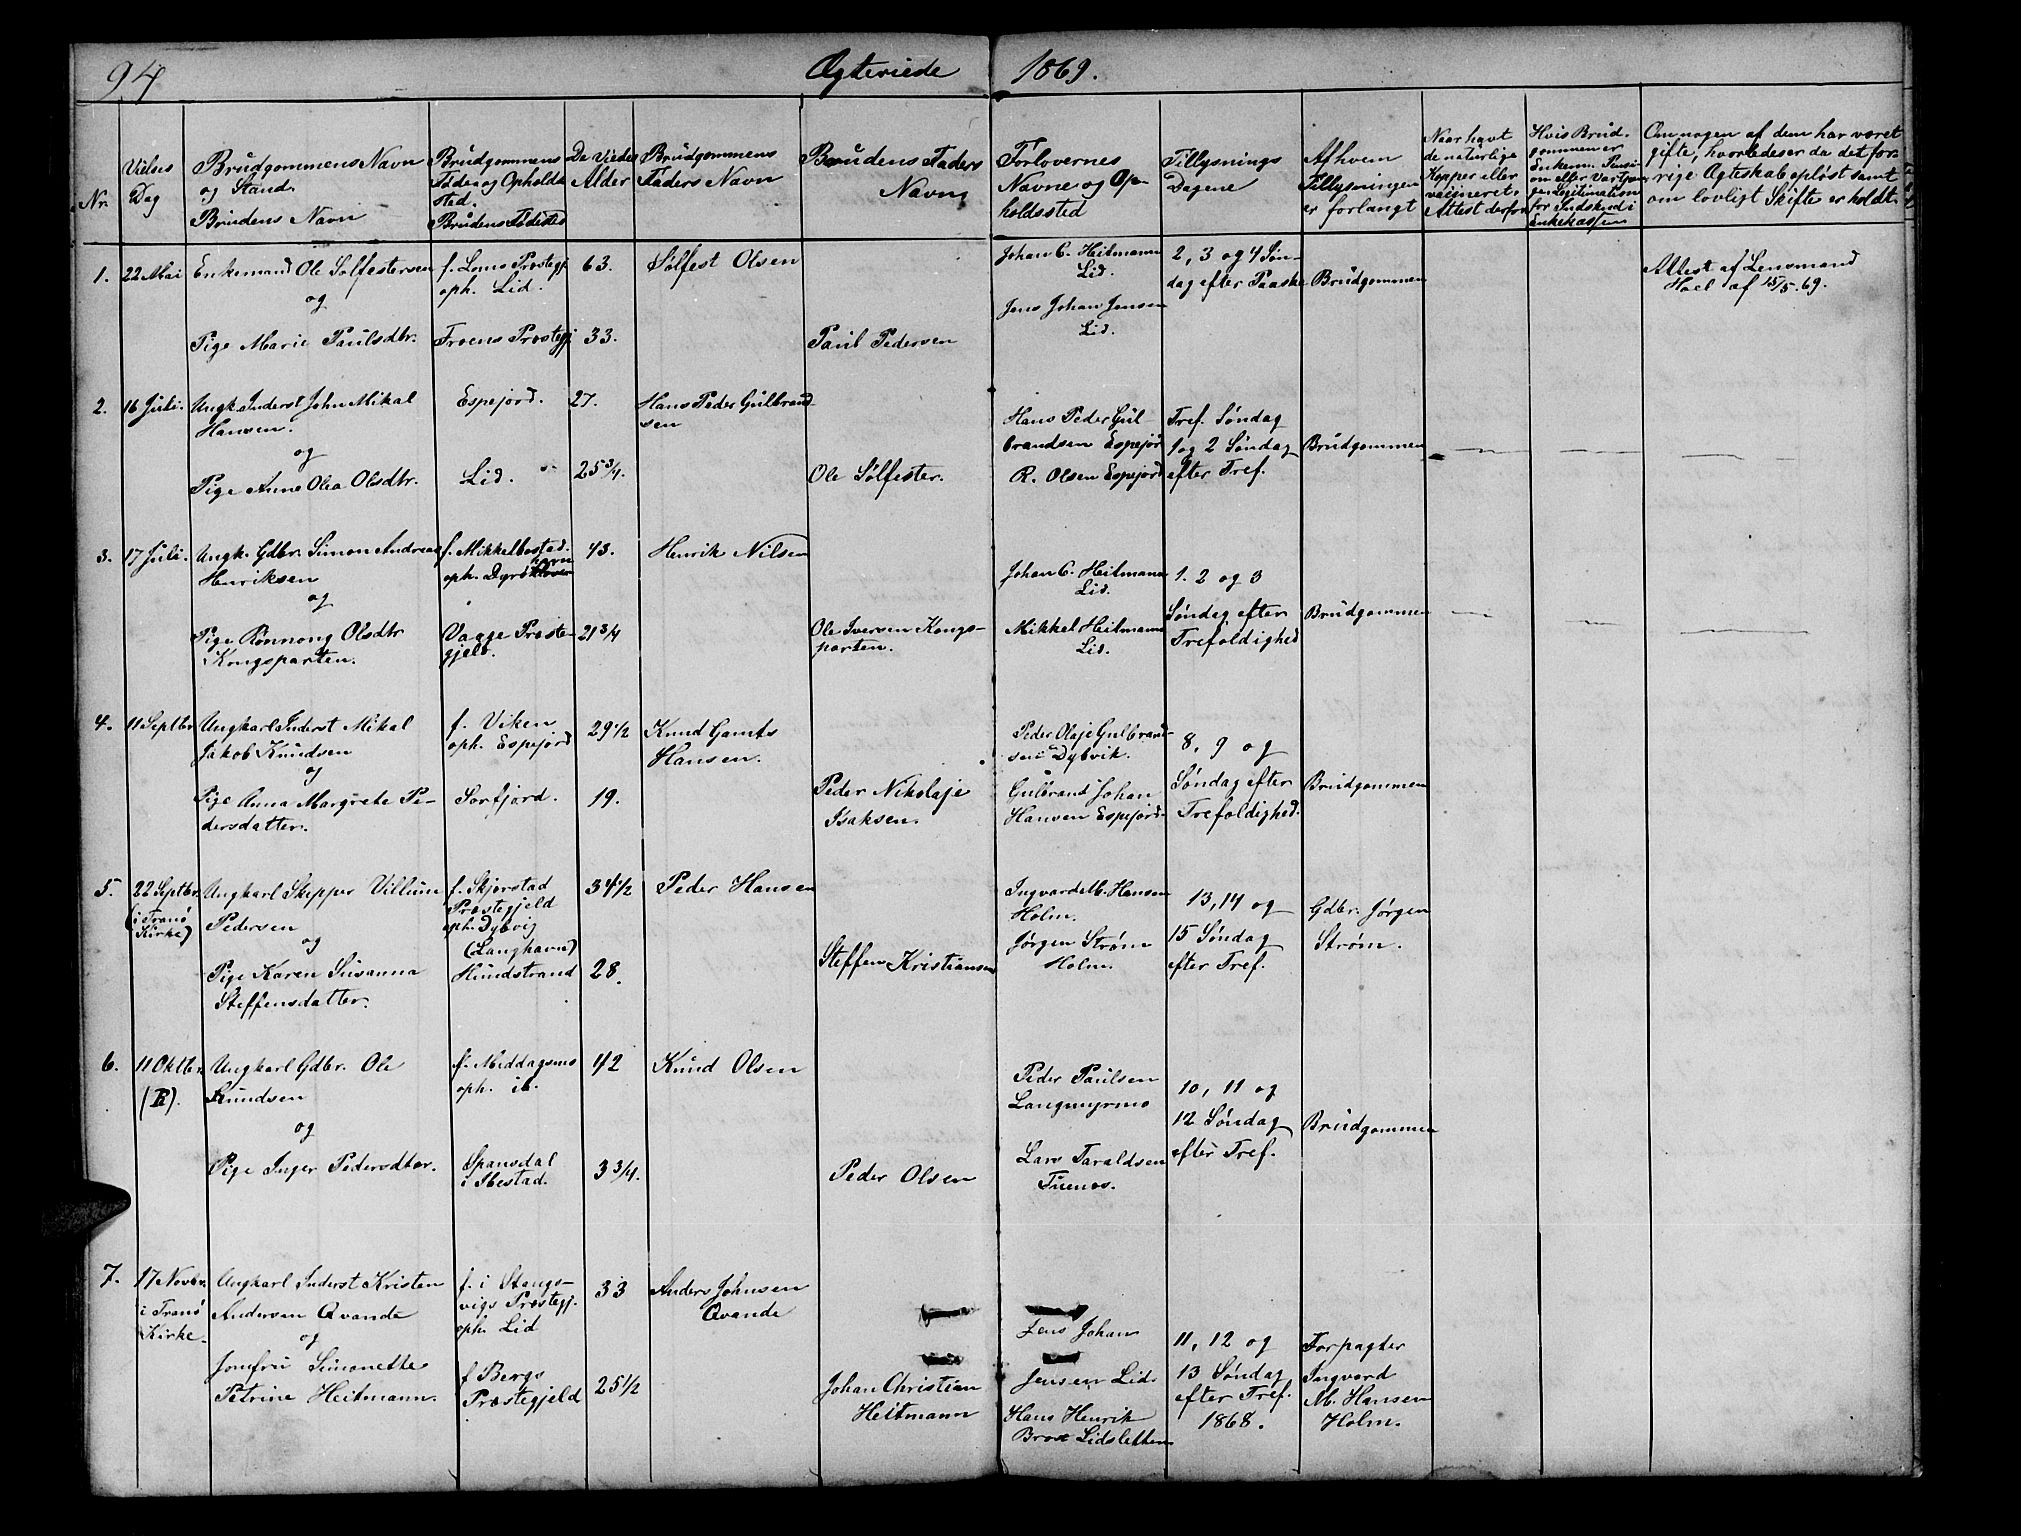 94
Ægteviede 1869.
Nr.
Vielses
Dag
Brudgommens Navn
og Stand.
Brudens Navn
Brudgommens
Føde og Opholds
sted.
Brudens Fødested
De Viedes
Alder
Brudgommens
Faders Navn
Brudens Faders
Navn
Forlovernes
Navne og Op-
holdssted
Tillysnings
Dagene
Af hvem
Tillysningen
er forlangt
Naar havt
de naturlige
Kopper eller
vaccineret.
Attest derfor
Hvis Brud-
gommen er
Enkem. Pensi-
on eller Vartpen-
gen Legitimation
for Indskud i
Enkekassen
Om nogen af dem har været
gifte, hvorledes er da det for-
rige Ægteskab opløst samt
om lovligt Skifte er holdt.
1.
22 Mai
Enkemand Ole Solfestersen
og
Pige Marie Paulsdtr.
f. Loms Prestegj.
oph. Lid.
Froens Prestegj.
63.
33.
Sølfest Olsen
Paul Pedersen
Johan C. Heitmann
Lid.
Jens Johan Jensen
Lid.
2, 3 og 4 Søn-
dag efter Paaske
Brudgommen
Attest af Lensmand
Hoel af 15/5.69.
2.
16 Juli.
Ungk. Inderst John Mikal
Hansen.
og
Pige Anne Olea Olsdtr.
Espejord.
Lid.
27.
25 3/4.
Hans Peder Gulbrand-
sen
Ole Sølfester.
Hans Peder Gul-
brandsen Espejor
R. Olsen Espejord
Tref. Søndag
1 og 2 Søndag
efter Tref.
Brudgommen
3.
17 Juli.
Ungk. Gdbr. Simon Andreas
Henriksen
og
Pige Rønnong Olsdtr
Kongsparten.
f. Mikkelbostad.
oph. Dyrø
Vaage Preste-
gjeld.
43.
21 3/4
Henrik Nilsen
Ole Iversen Kongs-
parten.
Johan C. Heitmann
Lid.
Mikkel Heitmann
Lid.
1. 2 og 3
Søndag efter
Trefoldighed
Brudgommen
4.
11 Septbr
Ungkarl Inderst Mikal
Jakob Knudsen
og
Pige Anna Margrete Pe-
dersdatter.
f. Viken
oph. Espejord
Sorfjord.
29 1/2
19.
Knud Gamts
Hansen.
Peder Nikolaje
Isaksen.
Peder Olaje Gulbrand-
sen Dybvik.
Gulbrand Johan
Hansen Espejord.
8, 9 og
Søndag efter
Trefoldighed.
Brudgommen
5.
22 Septbr.
(i Tranø
Kirke)
Ungkarl Skipper Villum
Pedersen
og
Pige Karen Susanna
Steffensdatter.
f. Skjerstad
Prestegjeld
oph. Dybvig
(Langhavn)
Hundstrand
34 1/2
28.
Peder Hansen
Steffen Kristiansen
Ingvard M. Hansen
Holm.
Jørgen Strøm
Holm.
13, 14 og
15 Søndag
efter Tref.
Gdbr. Jørgen
Strøm.
6.
11 Oktbr.
(R).
Ungkarl Gdbr. Ole
Knudsen
og
Pige Inger Pedersdter.
f. Middagsnes
oph. ib.
Spansdal
i Ibestad.
42
3 3/4.
Knud Olsen
Peder Olsen
Peder Paulsen
Langmyrmo
Lars Taraldsen
10, 11 og
12 Søndag
efter Tref.
Brudgommen
7.
17 Novbr.
i Tranø
Kirke.
Ungkarl Inderst Kristen
Andersen Qvande
og
Jomfru Simonette
Petrine Heitmann.
f. i Stangs-
vigs Prestegj.
oph. Lid
f Bergs
Prestegjeld
33
25 1/2
Anders Johnsen
Qvande
Johan Christian
Heitmann
Jens Johan
Jensen Lid.
Hans Henrik
Brox Lidsletten
11, 12 og
13 Søndag
efter Tref.
1868.
Forpagter
Ingvard
M. Hansen
Holm.